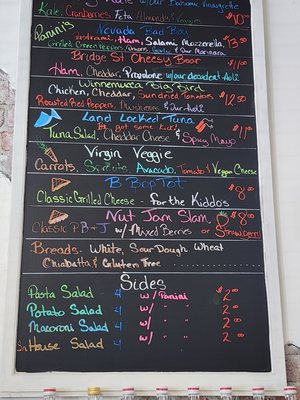 Kale w/ our Balsamic Vinaigrette
Kale Cranberries Feta Almonds & Veggies $10.00
Panini's
Nevada Bad Boy
Pastrami, Ham, Salami Mozzarella, $13.50
Grilled Green Peppers, Onions, & Our Marinara
Bridge St Cheesy Boar $11.00
Ham, Cheddar, Provolone w/our decadent Aoli
Winnemucca Big Bird
Chicken, Cheddar, Sun dried Tomatoes $12.50
Roasted Red Peppers, Mushrooms & Our Aoli
Land Locked Tuna
He got some kick! $11.00
Tuna Salad, Cheddar Cheese & Spicy Mayo
Virgin Veggie
Carrots, Sprouts, Avocado, Tomato & Vegan Cheese
B Bop Tot $8.00
Classic Grilled Cheese - for the Kiddos
Nut Jam Slam $8.00
Classic P B + J w/ Mixed Berries or Strawberry
Breads: White, Sour Dough Wheat
Chiabatta & Gluten Free
Sides
Pasta Salad 4 w/ Panini $2.00
Potato Salad 4 w/ " " 2.00
Macoroni Salad 4 w/ " " 2.00
Sm House Salad 4 w/ " " 2.00